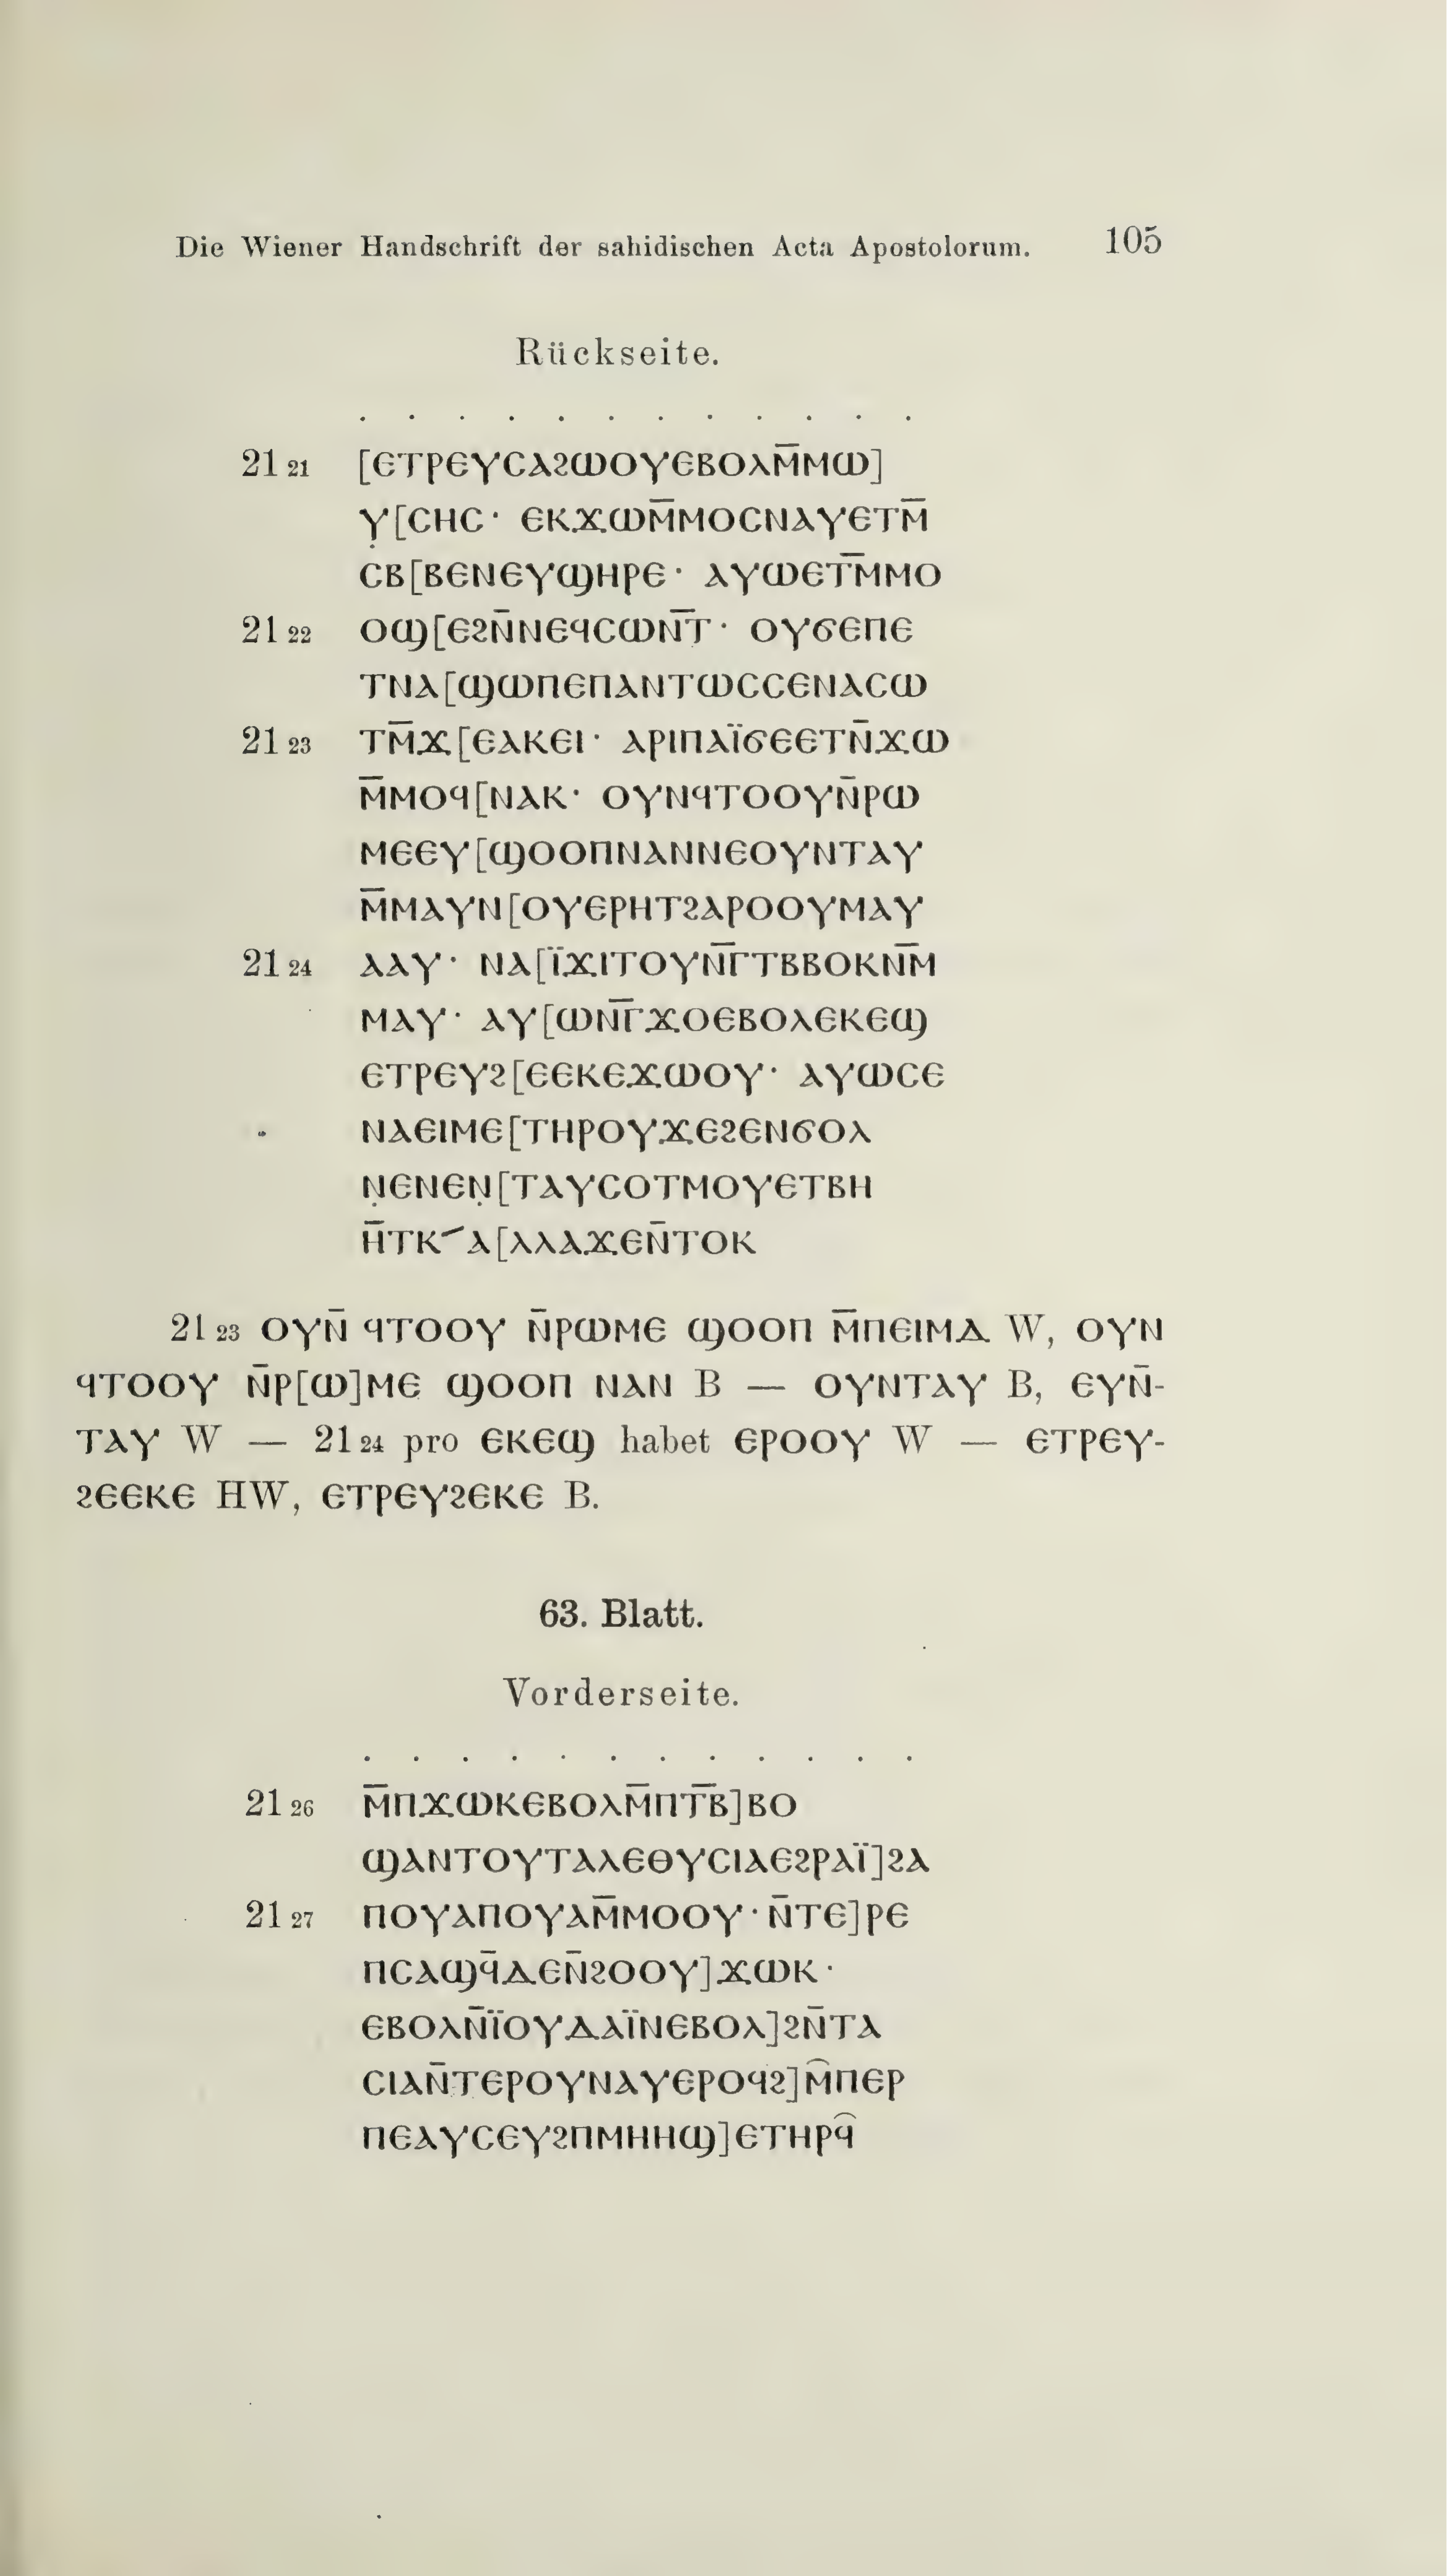 Die Wiener Handschrift der sahidischen Acta Apostolorum. 105
Rückseite.
. . . . . . . . . . . .
21 21 [ⲉⲧⲣⲉⲩⲥⲁϩⲱⲟⲩⲉⲃⲟⲗⲙ̅ⲙⲱ]
ⲩ̣[ⲥⲏⲥ· ⲉⲕϫⲱⲙ̅ⲙⲟⲥⲛⲁⲩⲉⲧⲙ̅
ⲥⲃ[ⲃⲉⲛⲉⲩϣⲏⲣⲉ· ⲁⲩⲱⲉⲧ̅ⲙⲙⲟ
21 22 ⲟϣ[ⲉϩⲛ̅ⲛⲉϥⲥⲱⲛ̅ⲧ· ⲟⲩϭⲉⲡⲉ
ⲧⲛⲁ[ϣⲱⲡⲉⲡⲁⲛⲧⲱⲥⲥⲉⲛⲁⲥⲱ
21 23 ⲧⲙ̅ϫ[ⲉⲁⲕⲉⲓ· ⲁⲣⲓⲡⲁⲓ̈ϭⲉⲉⲧⲛ̅ϫⲱ
ⲙ̅ⲙⲟϥ[ⲛⲁⲕ· ⲟⲩⲛϥⲧⲟⲟⲩⲛ̅ⲣⲱ
ⲙⲉⲉⲩ[ϣⲟⲟⲡⲛⲁⲛⲛⲉⲟⲩⲛⲧⲁⲩ
ⲙ̅ⲙⲁⲩⲛ[ⲟⲩⲉⲣⲏⲧϩⲁⲣⲟⲟⲩⲙⲁⲩ
21 24 ⲁⲁⲩ· ⲛⲁ[ⲓ̈ϫⲓⲧⲟⲩⲛ̅ⲅⲧⲃⲃⲟⲕⲛ̅ⲙ
ⲙⲁⲩ· ⲁⲩ[ⲱⲛ̅ⲅϫⲟⲉⲃⲟⲗⲉⲕⲉϣ
ⲉⲧⲣⲉⲩϩ[ⲉⲉⲕⲉϫⲱⲟⲩ· ⲁⲩⲱⲥⲉ
ⲛⲁⲉⲓⲙⲉ[ⲧⲏⲣⲟⲩϫⲉϩⲉⲛϭⲟⲗ
ⲛ̣ⲉⲛⲉⲛ̣[ⲧⲁⲩⲥⲟⲧⲙⲟⲩⲉⲧⲃⲏ
ⲏ̅ⲧⲕ⸍ⲁ[ⲗⲗⲁϫⲉⲛ̅ⲧⲟⲕ
21 23 ⲟⲩⲛ̅ ϥⲧⲟⲟⲩ ⲛ̅ⲣⲱⲙⲉ ϣⲟⲟⲡ ⲙ̅ⲡⲉⲓⲙⲁ W, ⲟⲩⲛ
ϥⲧⲟⲟⲩ ⲛ̅ⲣ[ⲱ]ⲙⲉ ϣⲟⲟⲡ ⲛⲁⲛ B — ⲟⲩⲛⲧⲁⲩ B, ⲉⲩⲛ̅-
ⲧⲁⲩ W — 21 24 pro ⲉⲕⲉϣ habet ⲉⲣⲟⲟⲩ W — ⲉⲧⲣⲉⲩ-
ϩⲉⲉⲕⲉ HW, ⲉⲧⲣⲉⲩϩⲉⲕⲉ B.
63. Blatt.
Vorderseite.
. . . . . . . . . . . .
21 26 ⲙ̅ⲡϫⲱⲕⲉⲃⲟⲗⲙ̅ⲡⲧ̅ⲃ]ⲃⲟ
ϣⲁⲛⲧⲟⲩⲧⲁⲗⲉⲑⲩⲥⲓⲁⲉϩⲣⲁⲓ̈]ϩⲁ
21 27 ⲡⲟⲩⲁⲡⲟⲩⲁⲙ̅ⲙⲟⲟⲩ·ⲛ̅ⲧⲉ]ⲣⲉ
ⲡⲥⲁϣϥ̅ⲇⲉⲛ̅ϩⲟⲟⲩ]ϫⲱⲕ·
ⲉⲃⲟⲗⲛ̅ⲓ̈ⲟⲩⲇⲁⲓ̈ⲛⲉⲃⲟⲗ]ϩⲛ̅ⲧⲁ
ⲥⲓⲁⲛ̅ⲧⲉⲣⲟⲩⲛⲁⲩⲉⲣⲟϥϩ]ⲙ̑ⲡⲉⲣ
ⲡⲉⲁⲩⲥⲉⲩϩⲡⲙⲏⲏϣ]ⲉⲧⲏⲣϥ̑